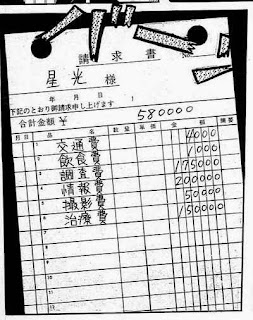 請求書
星光 様
年 月 日
下記のとおり御請求申し上げます
合計金額 ¥ 580000
月日 品名 数量 単価 金額 摘要
1 交通費 4000
2 飲食費 1000
3 調査費 175000
4 情報費 200000
5 撮影費 50000
6 治療費 150000
7
8
9
10
11
12